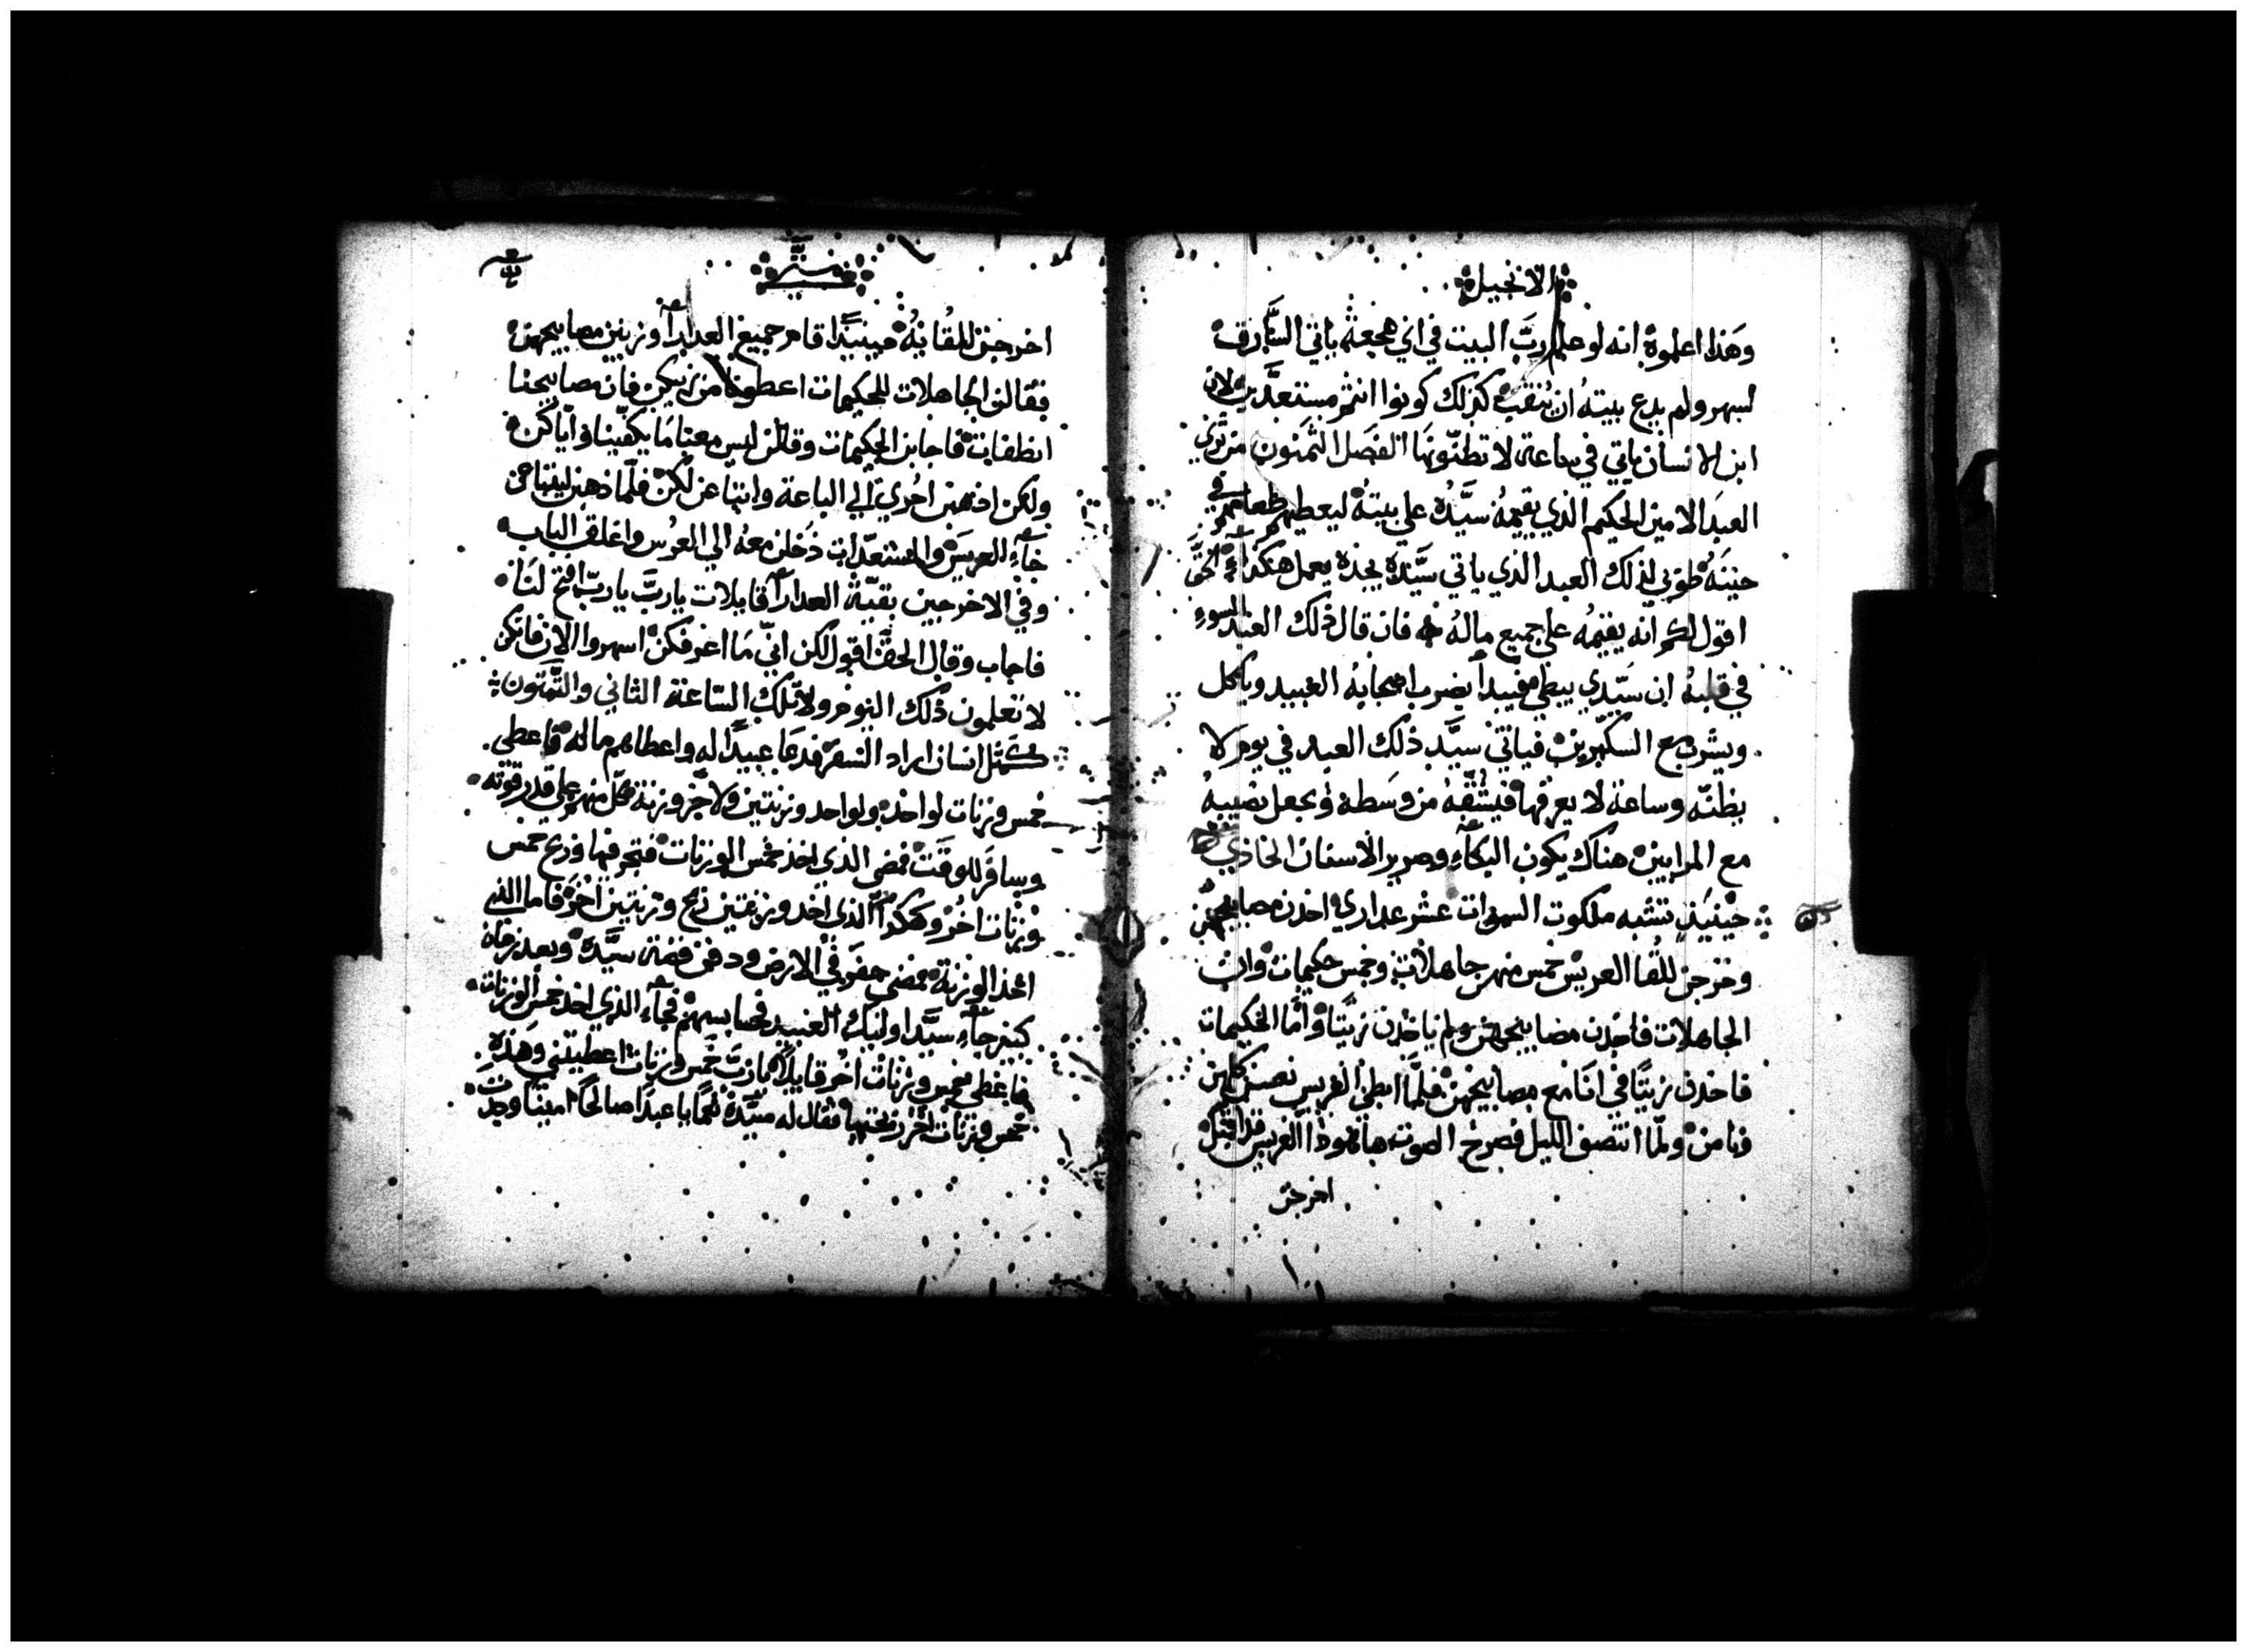 الانجيل
وهذا اعلموه انه لو علم ربّ البيت في اي هجعة ياتي السّارق
لسهر ولم يدع بيته ان ينقب كذلك كونوا انتم مستعدّين لان
ابن الانسان ياتي في ساعة لا تظنّونها الفصل الثمنون من تري
العبد الامين الحكيم الذي يقيمه سيّده علي بيته ليعطيهم طعامهم في
حينه طوبي لذلك العبد الذي ياتي سيّده يجده يعمل هكذا الحقّ
اقول لكم انّه يقيمه علي جميع ماله فان قال ذلك العبد السوء
في قلبه ان سيّدي يبطي فيبدأ يضرب اصحابه العبيد وياكل
ويشرب مع السكّيرين فياتي سيّد ذلك العبد في يوم لا
يظنّه وساعة لا يعرفها فيشقّه من وسطه ويجعل نصيبه
مع المرايين هناك يكون البكآء وصرير الاسنان الحادي
حينيذ تشبه ملكوت السموات عشر عداري اخدن مصابيحهن
وخرجن للقا العريس خمس منهن جاهلات وخمس حكيمات وان
الجاهلات فاخدن مصابيحهن ولم ياخدن زيتًا وأمّا الحكيمات
فاخدن زيتًا في انا مع مصابيحهن فلمّا ابطي العريس نعسن كلهن
ونامن ولمّا انتصف الليل فصرخ الصوت هاهوذا العريس قد اقبل
اخرجن
اخرجن للقايه حينيذًا قام جميع العدارا وزيّن مصابيحهن
فقالن الجاهلات للحكيمات اعطونا من زيتكن فان مصابيحنا
انطفات فاجابن الحكيمات وقالن ليس معنا ما يكفّينا وايّاكن
ولكن اذهبن احري الي الباعة وابتاعن لكن فلمّا ذهبن ليبتاعن
جآء العريس والمستعدّات دخلن معه الي العرس واغلق الباب
وفي الاخر جين بقيّة العدارا قايلات يا ربّ يا ربّ افتح لنا
فاجاب وقال الحقّ اقول لكن انّي ما اعرفكن اسهروا الان فانكن
لا تعلمون ذلك اليوم ولا تلك السّاعة الثاني والثمنون
كمثل انسان اراد السفر فدعا عبيدًا له واعطاهم ماله فاعطي
خمس وزنات لواحد ولواحد وزنتين ولاخر وزنة كلّ منهم علي قدر قوّته
وسافر للوقت فمضي الذي اخذ خمس الوزنات فتجر فيها وربح خمس
وزنات اخر وهكذا الذي اخد وزنتين ربح وزنتين اخر فاما الذي
اخذ الوزنة فمضي حفر في الارض ودفن فضة سيّده وبعد زمان
كتير جآء سيّد اوليك العبيد فحاسبهم فجآء الذي اخد خمس الوزنات
فاعطي خمس وزنات اخر قايلًا يا ربّ خمس وزنات اعطيتني وهذه
خمس وزنات اخر ربحتها فقال له سيّده نعمًا يا عبدًا صالحًا امينًا وجدت